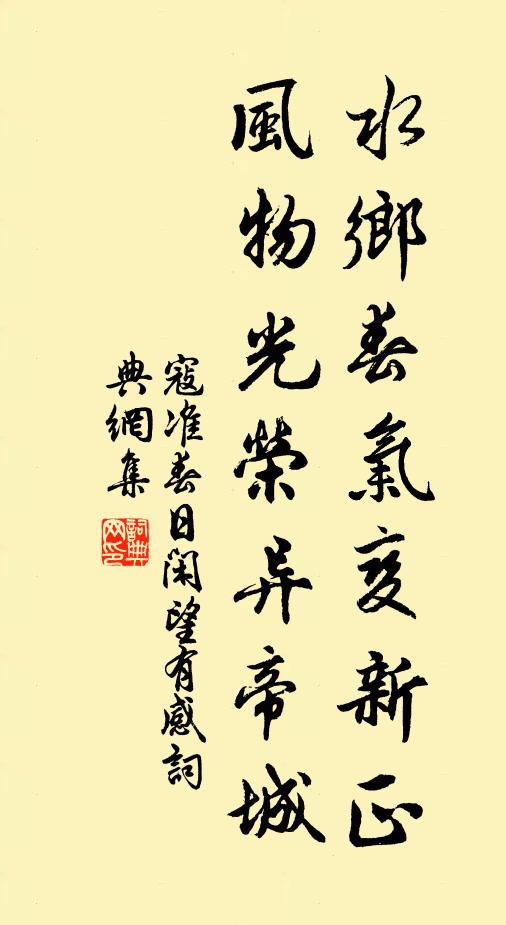 水鄉春氣变新正
風物光榮异帝城
寇准春日閑望有感詞
典網集
詞典網印